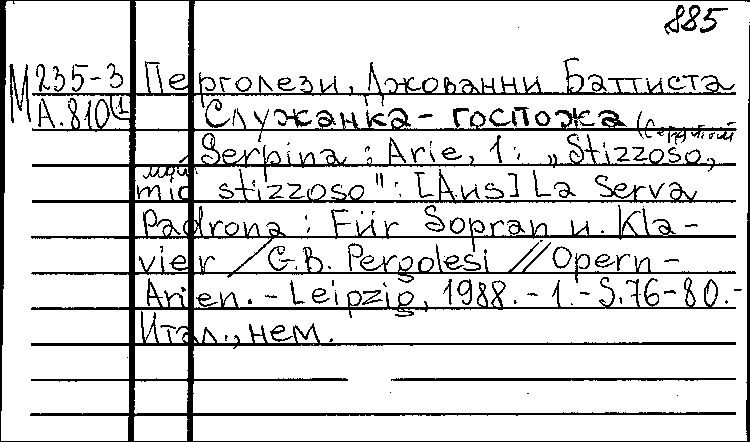 885
М 235-3 Перголези, Джованни Баттиста
А.810(1 Служанка - госпожа (Сердитый
Serpina : Arie, 1 : „Stizzoso,
мой
mio stizzoso" : [Aus] La Serva
Padrona : Für Sopran u. Kla-
vier / G.B. Pergolesi // Opern-
Arien. - Leipzig, 1988. - 1. - S. 76-80. -
Итал., нем.